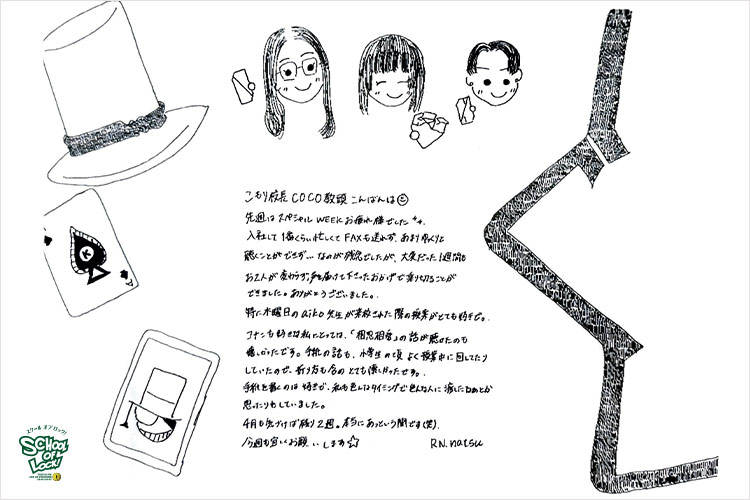 こもり校長 COCO教頭 こんばんは
先週はスペシャルWEEKお疲れ様でした
入社して1番くらい忙しくてFAXも送れず、あまりゆっくり
聴くことができず…なのが残念でしたが、大変だった1週間も
お2人が変わらず声を届けて下さったおかげで乗り切ることが
できました。ありがとうございました。
特に水曜日のaiko先生が来校された際の授業がとても好きで。
コナンも好きな私にとっては、「相思相愛」の話が聴けたのも
嬉しかったです。手紙の話も、小学生の頃よく授業中に回してたり
していたので、折り方も含めとても懐かしかったです。
手紙を書くのは好きで、私も色んなタイミングで色んな人に渡したなぁとか
思ったりもしていました。
4月も気づけば残り2週。本当にあっという間です(笑)
今週も宜しくお願いします☆
RN.natsu
K
スクール オブ ロック!
SCHOOL
OF
LOCK!